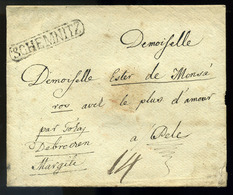 SCHEMNITZ
Demoiselle
Demoiselle Ester de Monsá
ros avec le plus d'amour
par Tokay
Debreczen
Margita
a Pele
14